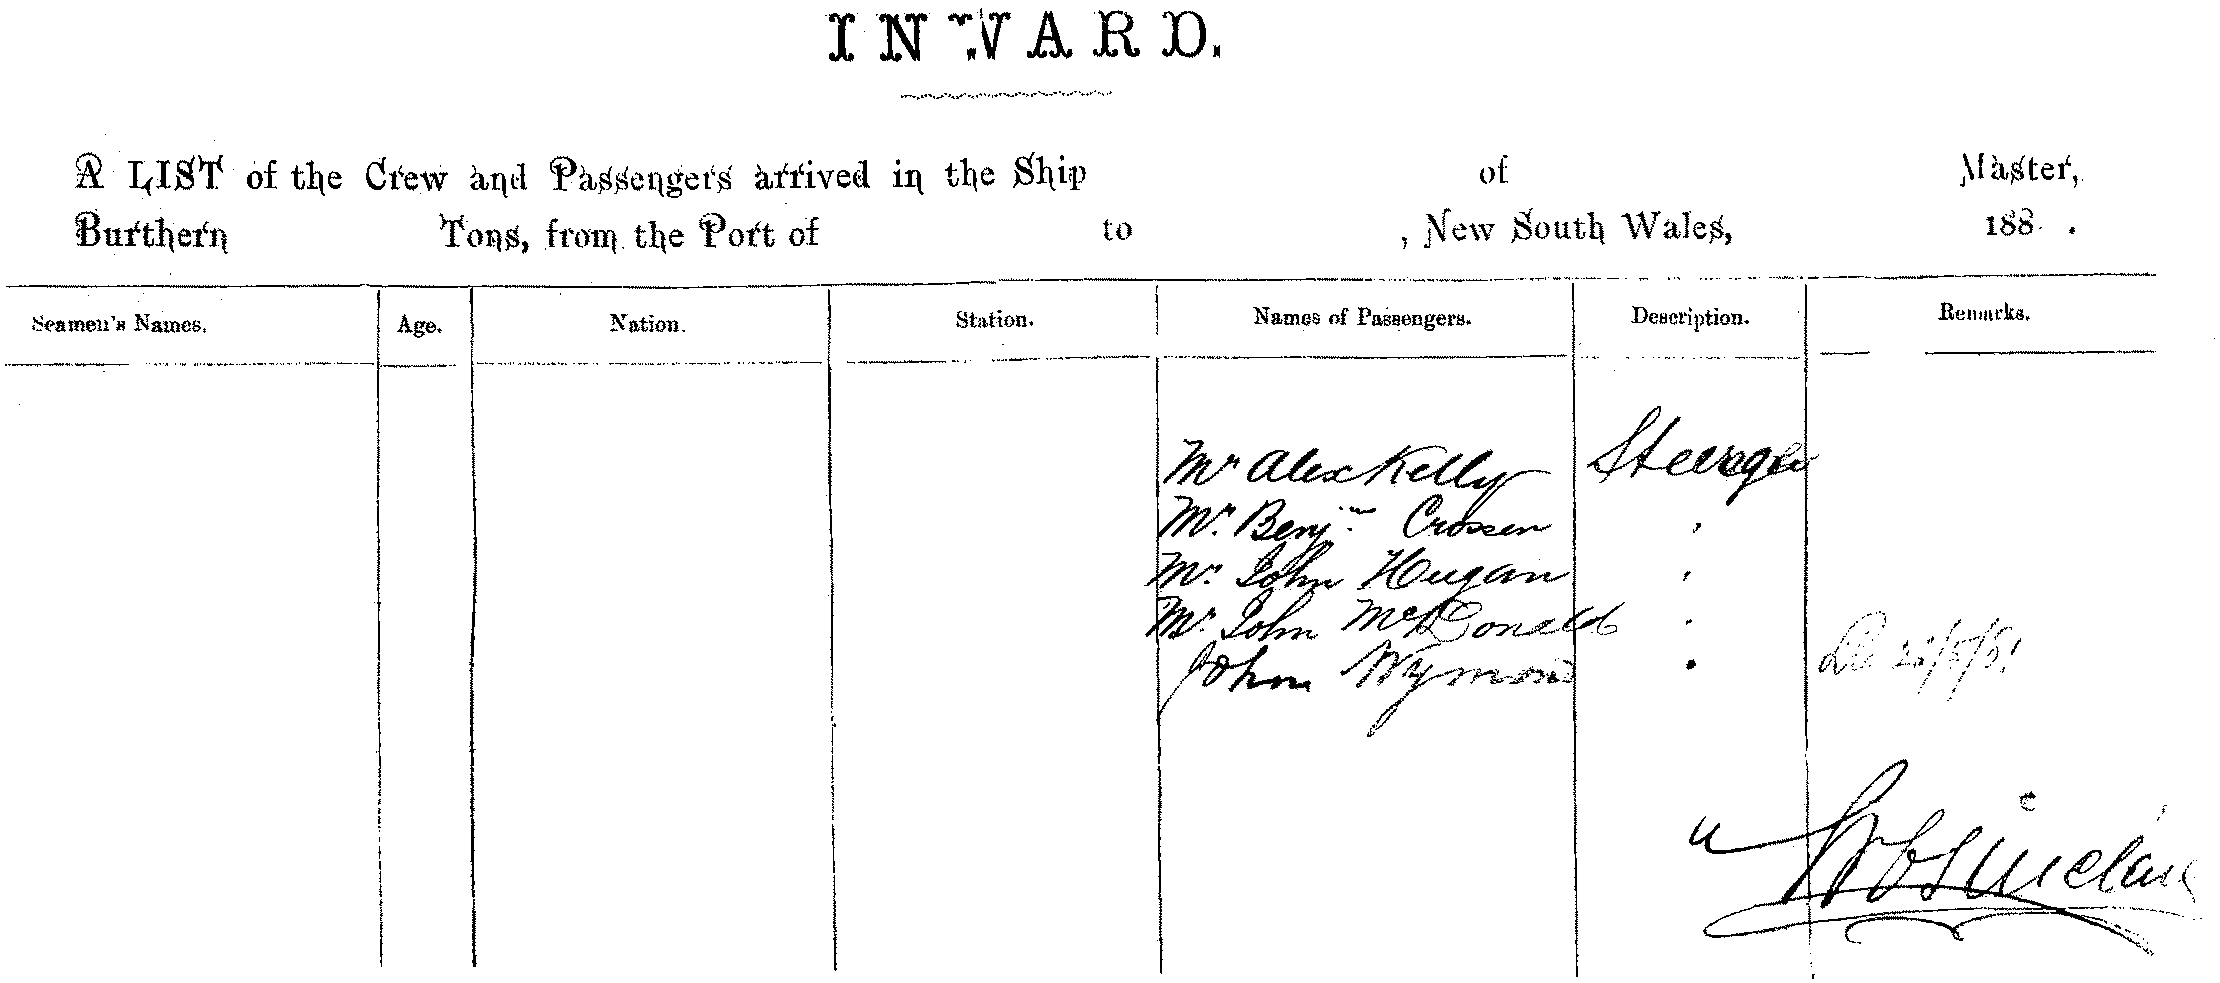 INWARD.
A LIST of the Crew and Passengers arrived in the Ship of Master,
Burthern Tons, from the Port of to , New South Wales, 188 .
Seamen's Names. Age. Nation. Station. Names of Passengers. Description. Remarks.
Mr Alex Kelly Steerage
Mr. Benjn. Crossen "
Mr. John Hugan "
Mr. John McDonald "
John Wymond "
Sinclair